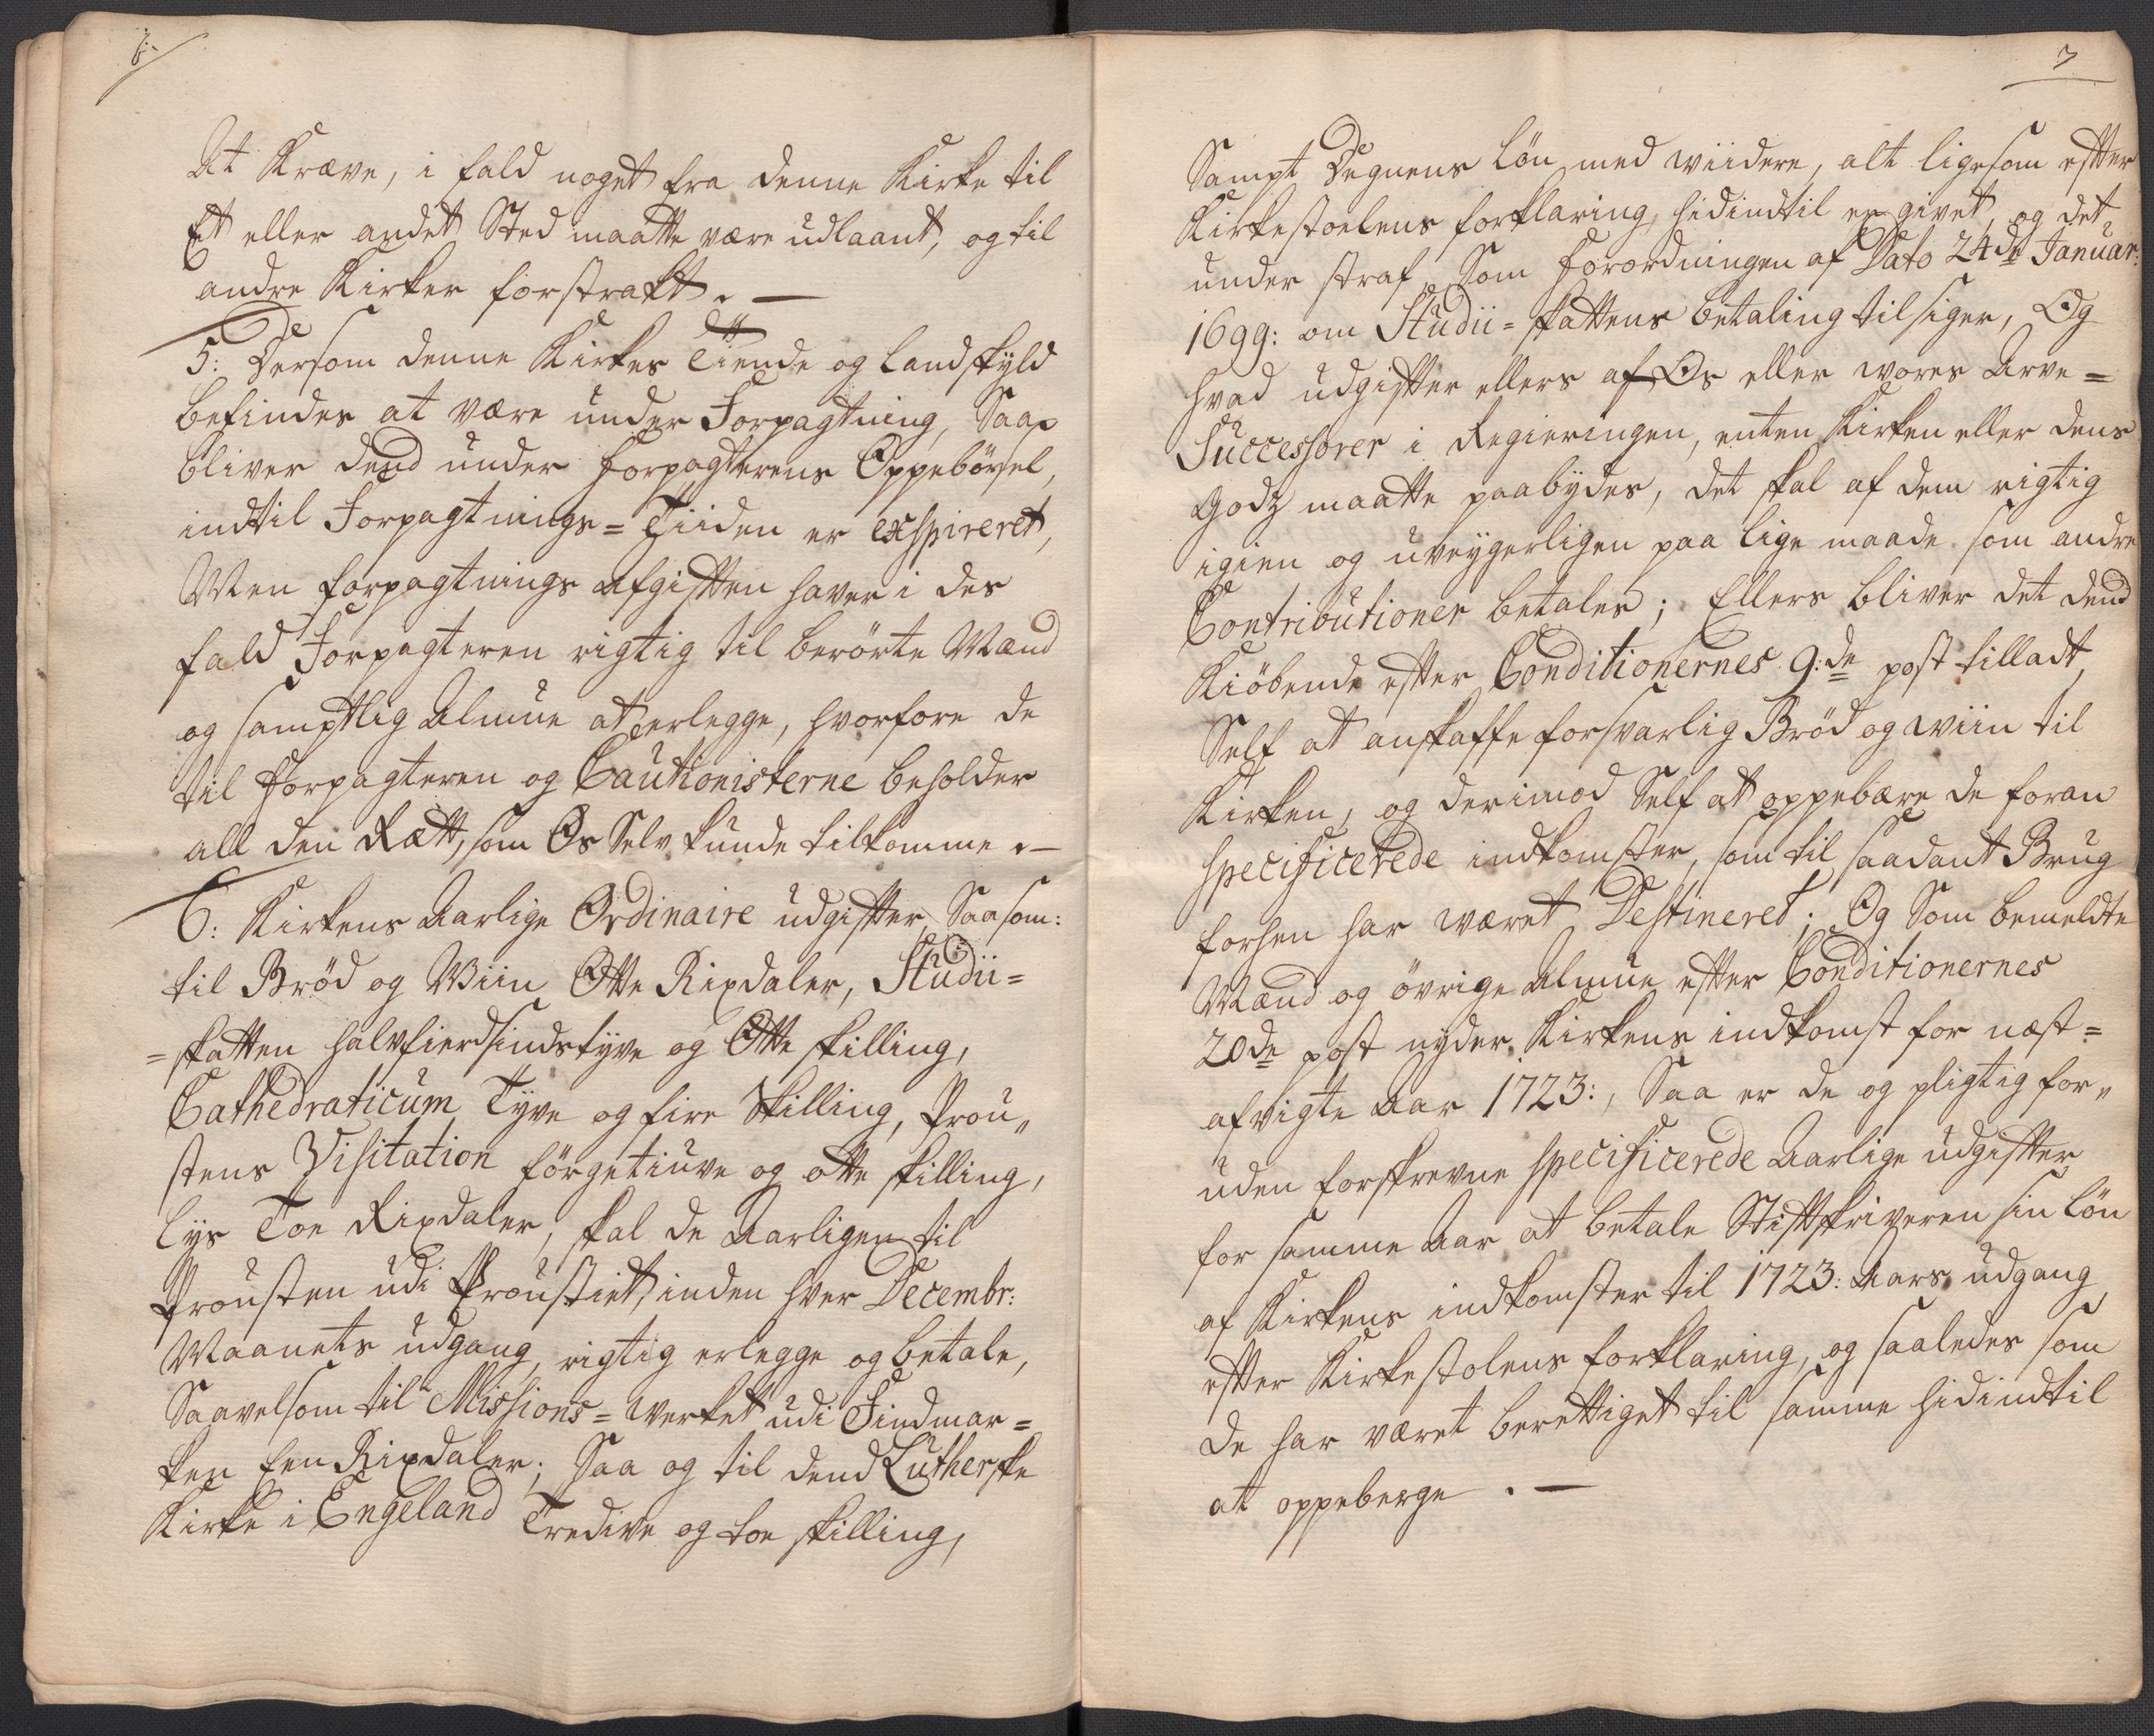 6.
At Kræve, i fald noget fra denne Kirke til
Et eller andet Sted maatte være udlaant, og til
andre Kirker forstrakt. —
5: Dersom denne Kirkes Tiende og Landskyld
befindes at være under Forpagtning, Saa
bliver dend under Forpagterens Oppebørsel,
indtil Forpagtnings=Tiiden er exspireret,
Men forpagtnings afgiften haver i des
fald Forpagteren rigtig til berørte Mænd
og samptlig Almue at erlegge, hvorfore de
til Forpagteren og Cautionisterne beholder
all den Rætt, som Os Selv kunde tilkomme. —
6: Kirkens Aarlige Ordinaire udgifter, Saasom:
til Brød og Viin Otte Rixdaler, Studii=
=skatten halvfierdsindstyve og Otte skilling,
Cathedraticum Tyve og fire Skilling, Prou„
stens Visitation förgetiuve og otte skilling,
Lys Toe Rixdaler, skal de Aarligen til
Prousten udi Proustiet, inden hver Decembr:
Maanets udgang, rigtig erlegge og betale,
Saavelsom til Missions=werket udi Findmar=
ken Een Rixdaler; Saa og til dend Lutherske
Kirke i Engeland Tredive og toe skilling,
7
Sampt Degnens Løn, med wiidere, alt ligesom efter
Kirkestoelens forklaring, hidindtil er givet, og det
under straf, Som Forordningen af Dato 24de Januar:
1699: om Studii=skattens betaling tilsiger, Og
hvad udgifter ellers af Os eller wores Arve=
Successorer i Regieringen, enten Kirken eller dens
Godz maatte paabydes, det skal af dem rigtig
igien og uveygerligen paa lige maade som andre
Contributioner betales; Ellers bliver det dend
Kiøbende efter Conditionernes 9:de post tilladt,
Self at anskaffe forsvarlig Brød og wiin til
Kirken, og derimod Self at oppebære de foran
specificerede indkomster, som til saadant Brug
forhen har wæret Destineret; Og Som bemeldte
Mænd og övrige Almue efter Conditionernes
20de post nyder Kirkens indkomst for næst=
afvigte Aar 1723:, Saa er de og pligtig for„
uden forskrevne specificerede Aarlige udgifter
for samme Aar at betale Stiftskriveren sin Løn
af Kirkens indkomster til 1723: Aars udgang
efter Kirkestolens forklaring, og saaledes som
de har wæret berettiget til samme hidindtil
at oppeberge. —